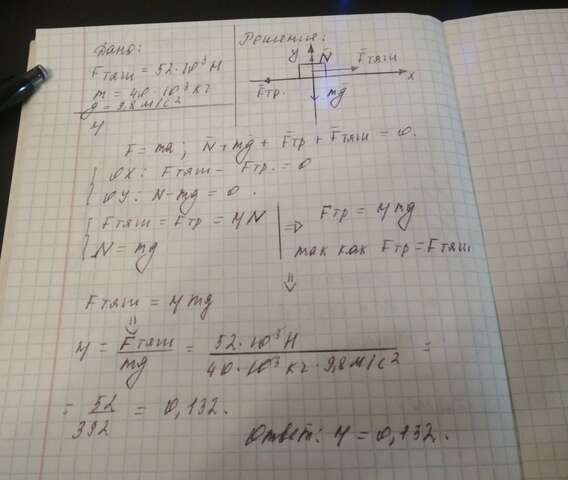 Дано:
Fтяж = 52·10³ Н
m = 40·10³ кг
g = 9,8 м/с²
μ
Решение:
y
N
Fтяж
Fтр.
mg
x
F = ma; N + mg + Fтр + Fтяж = 0.
OX: Fтяж - Fтр. = 0
OY: N - mg = 0.
Fтяж = Fтр = μN
N = mg
=> Fтр = μmg
так как Fтр = Fтяж
⇓
Fтяж = μmg
⇓
μ = Fтяж/mg = 52·10³ Н / 40·10³ кг·9,8 м/с² =
= 52/392 = 0,132.
Ответ: μ = 0,132.